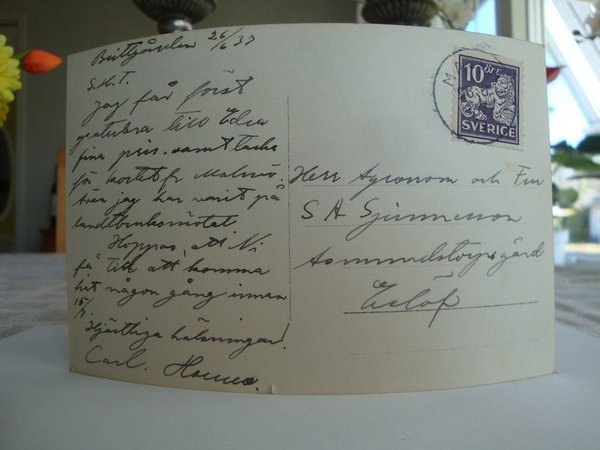 26/6 37
S.H.T.
Jag får först
gratulera till Edra
fina pris. samt tacka
för kortet fr Malmö.
jag har varit på
lantbruksmötet
Hoppas, att Ni
få tid att komma
hit någon gång innan
15/7.
Hjärtliga hälsningar!
Carl.
10 ÖRE
SVERIGE
M
Herr Agronom och Fru
S A
Asmundstorpsgård
Eslöf